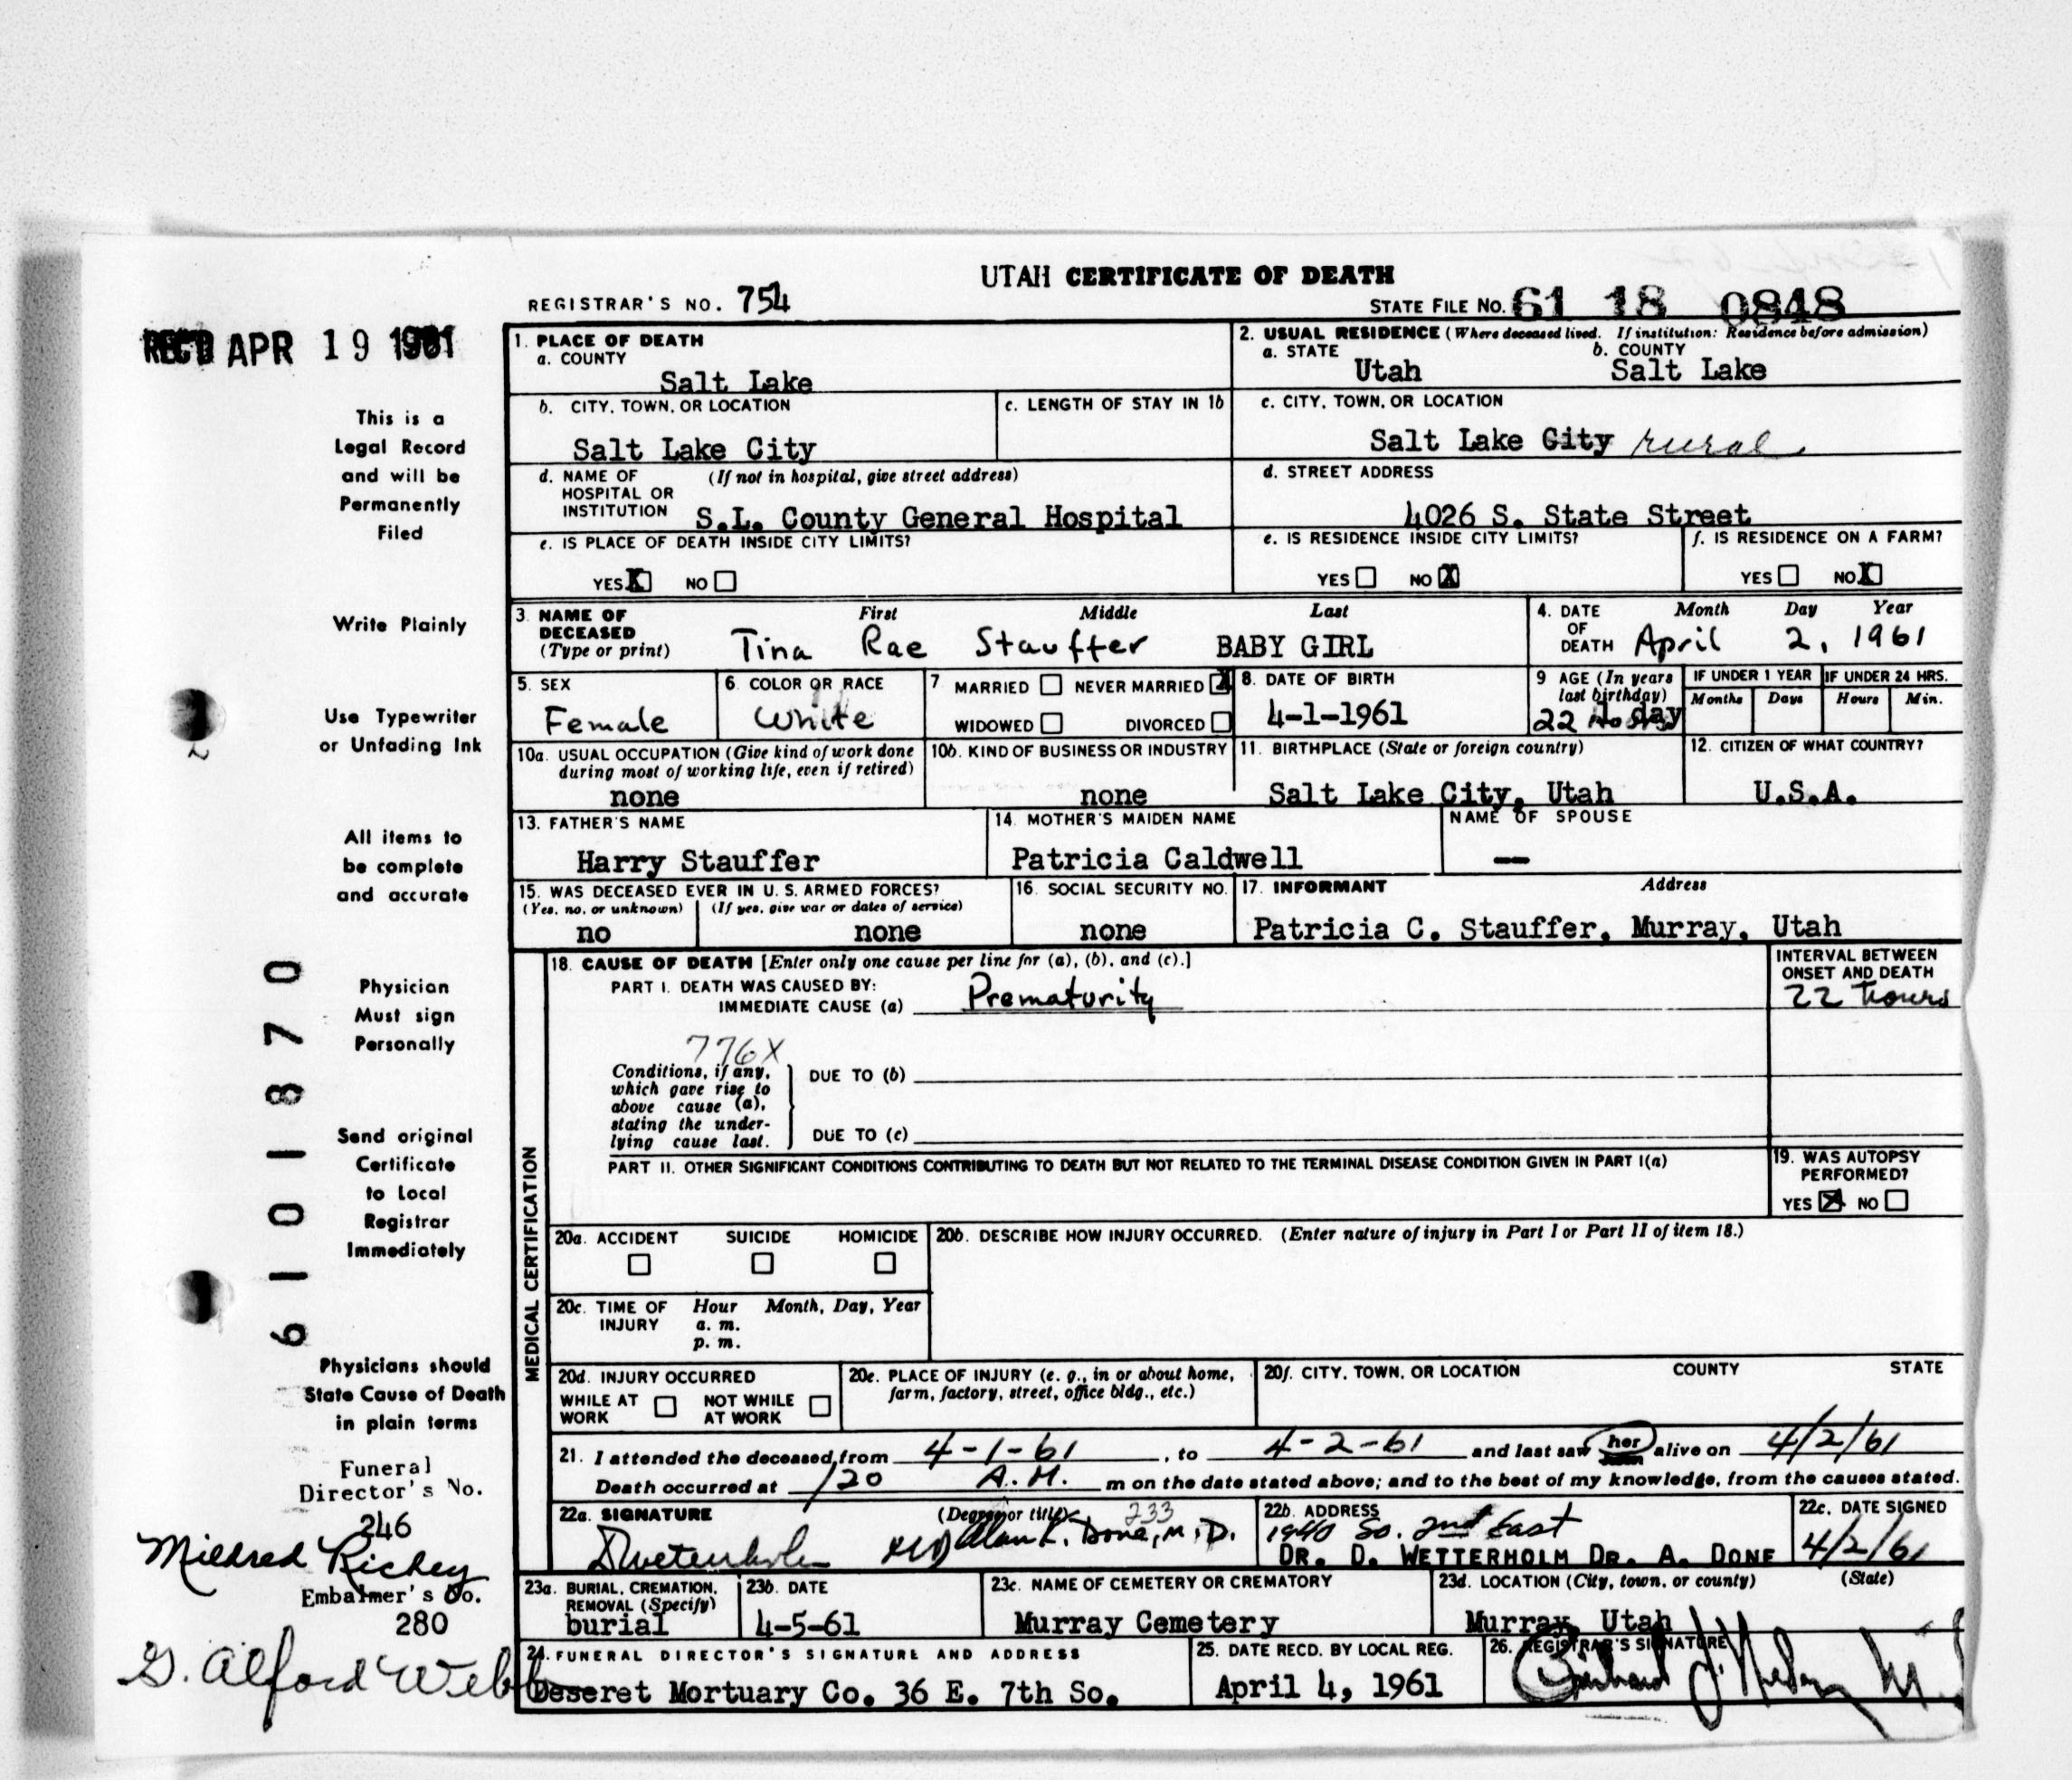 UTAH CERTIFICATE OF DEATH
REGISTRAR'S NO. 754
STATE FILE NO. 61 18 0848
REC'D APR 19 1961
This is a
Legal Record
and will be
Permanently
Filed
Write Plainly
Use Typewriter
or Unfading Ink
All items to
be complete
and accurate
Physician
Must sign
Personally
Send original
Certificate
to Local
Registrar
Immediately
Physicians should
State Cause of Death
in plain terms
Funeral
Director's No.
246
Mildred Richey
Embalmer's No.
280
G. Alford Webb
6101870
1. PLACE OF DEATH
a. COUNTY
Salt Lake
2. USUAL RESIDENCE (Where deceased lived. If institution: Residence before admission)
a. STATE b. COUNTY
Utah Salt Lake
b. CITY, TOWN, OR LOCATION
Salt Lake City
c. LENGTH OF STAY IN 1b
c. CITY, TOWN, OR LOCATION
Salt Lake City rural
d. NAME OF (If not in hospital, give street address)
HOSPITAL OR
INSTITUTION S.L. County General Hospital
d. STREET ADDRESS
4026 S. State Street
e. IS PLACE OF DEATH INSIDE CITY LIMITS?
YES X NO
e. IS RESIDENCE INSIDE CITY LIMITS?
YES NO X
f. IS RESIDENCE ON A FARM?
YES NO X
3. NAME OF First Middle Last
DECEASED
(Type or print) Tina Rae Stauffer BABY GIRL
4. DATE Month Day Year
OF
DEATH April 2, 1961
5. SEX
Female
6. COLOR OR RACE
White
7 MARRIED NEVER MARRIED X
WIDOWED DIVORCED
8. DATE OF BIRTH
4-1-1961
9 AGE (In years
last birthday)
22
IF UNDER 1 YEAR
Months Days
IF UNDER 24 HRS.
Hours Min.
10a. USUAL OCCUPATION (Give kind of work done
during most of working life, even if retired)
none
10b. KIND OF BUSINESS OR INDUSTRY
none
11. BIRTHPLACE (State or foreign country)
Salt Lake City, Utah
12. CITIZEN OF WHAT COUNTRY?
U.S.A.
13. FATHER'S NAME
Harry Stauffer
14. MOTHER'S MAIDEN NAME
Patricia Caldwell
NAME OF SPOUSE
—
15. WAS DECEASED EVER IN U. S. ARMED FORCES?
(Yes, no, or unknown) (If yes, give war or dates of service)
no none
16. SOCIAL SECURITY NO.
none
17. INFORMANT Address
Patricia C. Stauffer, Murray, Utah
MEDICAL CERTIFICATION
18. CAUSE OF DEATH [Enter only one cause per line for (a), (b), and (c).]
PART I. DEATH WAS CAUSED BY:
IMMEDIATE CAUSE (a) Prematurity
INTERVAL BETWEEN
ONSET AND DEATH
22 hours
776X
Conditions, if any,
which gave rise to
above cause (a),
stating the under-
lying cause last.
DUE TO (b)
DUE TO (c)
PART II. OTHER SIGNIFICANT CONDITIONS CONTRIBUTING TO DEATH BUT NOT RELATED TO THE TERMINAL DISEASE CONDITION GIVEN IN PART I(a)
19. WAS AUTOPSY
PERFORMED?
YES X NO
20a. ACCIDENT SUICIDE HOMICIDE
20b. DESCRIBE HOW INJURY OCCURRED. (Enter nature of injury in Part I or Part II of item 18.)
20c. TIME OF Hour Month, Day, Year
INJURY a. m.
p. m.
20d. INJURY OCCURRED
WHILE AT NOT WHILE
WORK AT WORK
20e. PLACE OF INJURY (e. g., in or about home,
farm, factory, street, office bldg., etc.)
20f. CITY, TOWN, OR LOCATION COUNTY STATE
21. I attended the deceased from 4-1-61, to 4-2-61 and last saw her alive on 4/2/61
Death occurred at 120 A.M. m on the date stated above; and to the best of my knowledge, from the causes stated.
22a. SIGNATURE (Degree or title) 233
DWetterholm MD Alan K. Done, M.D.
22b. ADDRESS
1940 So. 2nd East
DR. D. WETTERHOLM DR. A. DONE
22c. DATE SIGNED
4/2/61
23a. BURIAL, CREMATION,
REMOVAL (Specify)
burial
23b. DATE
4-5-61
23c. NAME OF CEMETERY OR CREMATORY
Murray Cemetery
23d. LOCATION (City, town, or county) (State)
Murray, Utah
24. FUNERAL DIRECTOR'S SIGNATURE AND ADDRESS
Deseret Mortuary Co. 36 E. 7th So.
25. DATE RECD. BY LOCAL REG.
April 4, 1961
26. REGISTRAR'S SIGNATURE